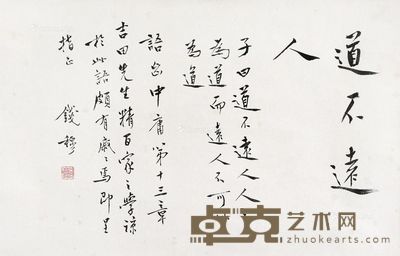 道不遠
人
子曰道不遠人人之
為道而遠人不可以
為道
語出中庸第十三章
吉田先生精百家之學諒
於此語頗有感感焉即呈
指正
錢穆
卓克艺术网
zhuokearts.com